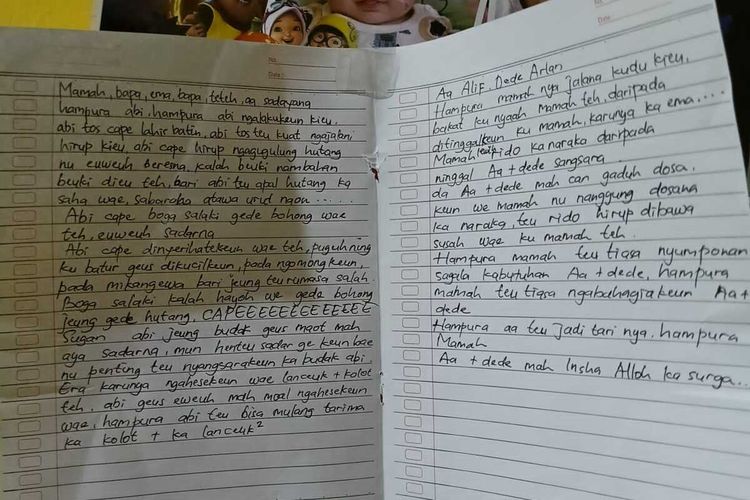 No.
Date:
Mamah, bapa, ema, bapa, teteh, aa sadayana
hampura abi, hampura abi ngalakukeun kieu,
abi tos cape lahir batin, abi tos teu kuat ngajalani
hirup kieu, abi cape hirup ngagugulung hutang
nu euweuh beresna, kalah beuki nambahan
beuki dieu teh, bari abi teu apal hutang ka
saha wae, sabaraha atawa urid naon .....
Abi cape boga salaki gede bohong wae
teh, euweuh sadarna
Abi cape dinyerihatekeun wae teh, puguh ning
ku batur geus dikucilkeun, pada ngomongkeun,
pada mikangewa bari jeung teu rumasa salah.
Boga salaki kalah hayoh we gede bohong
jeung gede hutang, CAPEEEEEEEEEEEEE
Sugan abi jeung budak geus maot mah
aya sadarna, mun henteu sadar ge keun bae
nu penting teu nyangsarakeun ka budak abi.
Era karunya ngahesekeun wae lanceuk + kolot
teh, abi geus euweuh mah moal ngahesekeun
wae, hampura abi teu bisa mulang tarima
ka kolot + ka lanceuk²
No.
Date
Aa Alif, Dede Arlan
Hampura mamah nya jalana kudu kieu,
bakat ku nyaah mamah teh, daripada
ditinggalkeun ku mamah, karunya ka ema....
Mamah leuih rido ka naraka daripada
ninggal Aa + dede sangsara.
da Aa + dede mah can gaduh dosa,
keun we mamah nu nanggung dosana
ka naraka, teu rido hirup dibawa
susah wae ku mamah teh.
Hampura mamah teu tiasa nyumponan
sagala kabutuhan Aa + dede, hampura
mamah teu tiasa ngabahagiakeun Aa +
dede
Hampura aa teu jadi tari nya, hampura
Mamah
Aa + dede mah Insha Alloh ka surga...